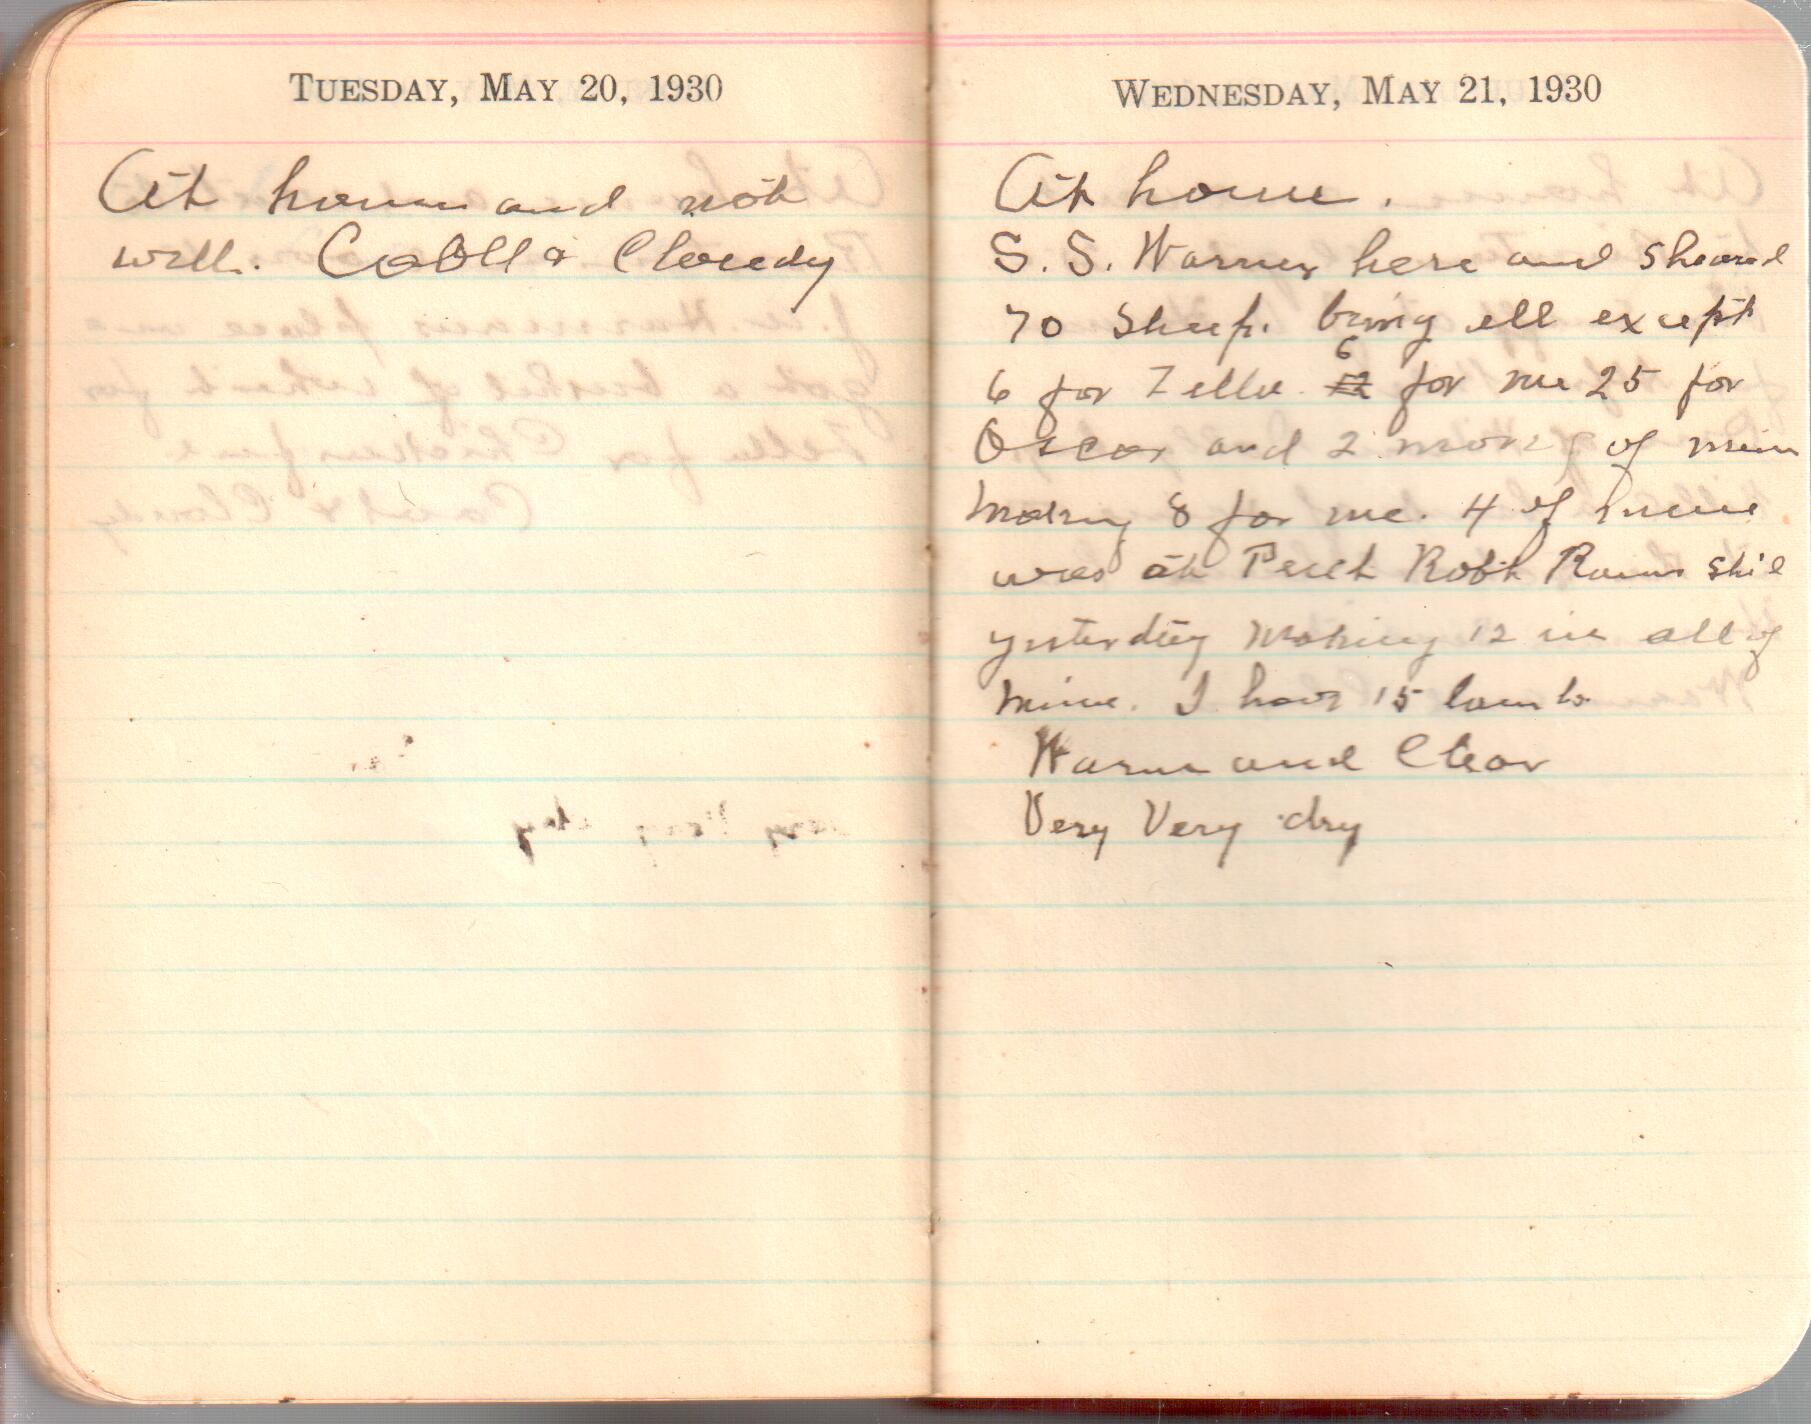 TUESDAY, MAY 20, 1930
At home and not
well. Coold & Cloudy
WEDNESDAY, MAY 21, 1930
At home.
S. S. Warner here and sheared
70 Sheep. being all except
6 for Zella. 6 for me 25 for
Oscar and 2 more of mine
making 8 for me. 4 of mine
was at Robt
yesterday Making 12 in all of
mine. I have 15 lambs
Warm and Clear
Very Very dry